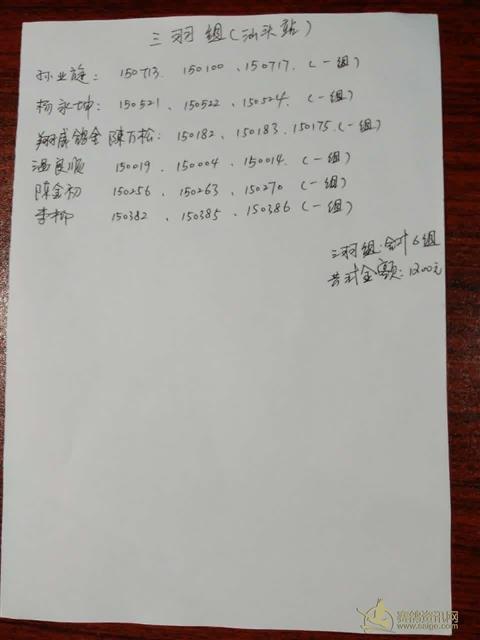 三羽组(汕头站)
孙业旋: 150713. 150100、150717. (一组)
杨永坤: 150521、150522、150524. (一组)
翔威鸽舍 陈万松: 150182、150183、150175. (一组)
温良顺 150019、150004、150014. (一组)
陈金初 150256、150263、150270 (一组)
李柳 150382、150385、150386 (一组)
三羽组:合计6组
共计金额:1200元
赛鸽资讯网
www.saige.com